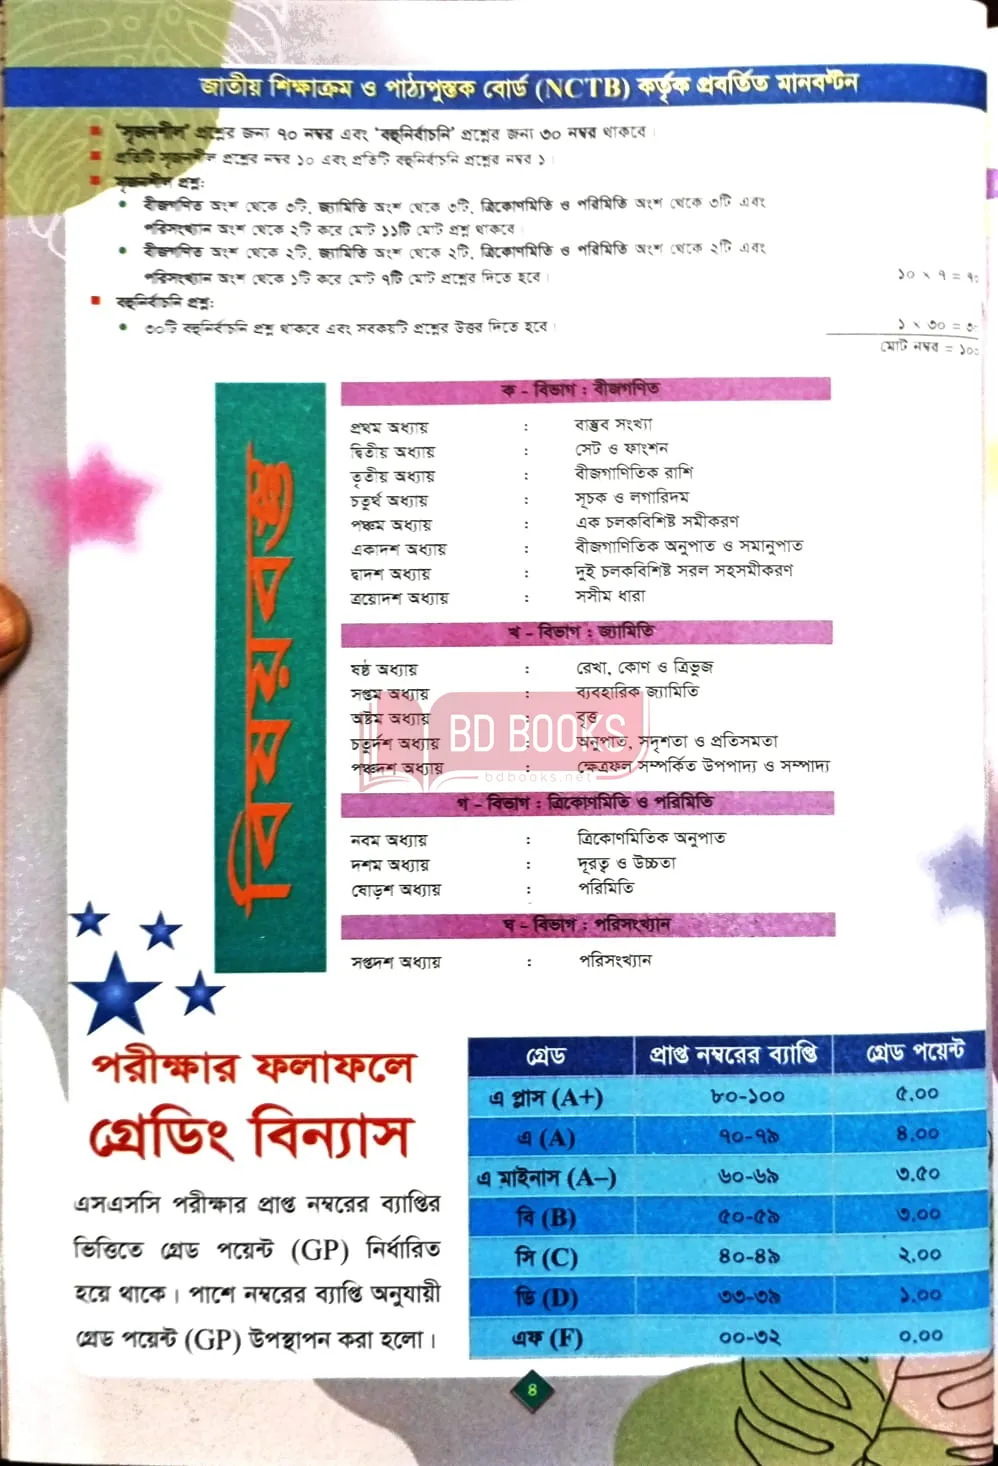 জাতীয় শিক্ষাক্রম ও পাঠ্যপুস্তক বোর্ড (NCTB) কর্তৃক প্রবর্তিত মানবণ্টন
'সৃজনশীল' প্রশ্নের জন্য ৭০ নম্বর এবং 'বহুনির্বাচনি' প্রশ্নের জন্য ৩০ নম্বর থাকবে।
প্রতিটি সৃজনশীল প্রশ্নের নম্বর ১০ এবং প্রতিটি বহুনির্বাচনি প্রশ্নের নম্বর ১।
সৃজনশীল প্রশ্ন:
বীজগণিত অংশ থেকে ৩টি, জ্যামিতি অংশ থেকে ৩টি, ত্রিকোণমিতি ও পরিমিতি অংশ থেকে ৩টি এবং
পরিসংখ্যান অংশ থেকে ২টি করে মোট ১১টি মোট প্রশ্ন থাকবে।
বীজগণিত অংশ থেকে ২টি, জ্যামিতি অংশ থেকে ২টি, ত্রিকোণমিতি ও পরিমিতি অংশ থেকে ২টি এবং
পরিসংখ্যান অংশ থেকে ১টি করে মোট ৭টি মোট প্রশ্নের দিতে হবে। ১০ × ৭ = ৭০
বহুনির্বাচনি প্রশ্ন:
৩০টি বহুনির্বাচনি প্রশ্ন থাকবে এবং সবকয়টি প্রশ্নের উত্তর দিতে হবে। ১ × ৩০ = ৩০
মোট নম্বর = ১০০
বিষয়বস্তু
ক - বিভাগ : বীজগণিত
প্রথম অধ্যায় : বাস্তব সংখ্যা
দ্বিতীয় অধ্যায় : সেট ও ফাংশন
তৃতীয় অধ্যায় : বীজগাণিতিক রাশি
চতুর্থ অধ্যায় : সূচক ও লগারিদম
পঞ্চম অধ্যায় : এক চলকবিশিষ্ট সমীকরণ
একাদশ অধ্যায় : বীজগাণিতিক অনুপাত ও সমানুপাত
দ্বাদশ অধ্যায় : দুই চলকবিশিষ্ট সরল সহসমীকরণ
ত্রয়োদশ অধ্যায় : সসীম ধারা
খ - বিভাগ : জ্যামিতি
ষষ্ঠ অধ্যায় : রেখা, কোণ ও ত্রিভুজ
সপ্তম অধ্যায় : ব্যবহারিক জ্যামিতি
অষ্টম অধ্যায় : বৃত্ত
চতুর্দশ অধ্যায় : অনুপাত, সদৃশতা ও প্রতিসমতা
পঞ্চদশ অধ্যায় : ক্ষেত্রফল সম্পর্কিত উপপাদ্য ও সম্পাদ্য
BD BOOKS
bdbooks.net
গ - বিভাগ : ত্রিকোণমিতি ও পরিমিতি
নবম অধ্যায় : ত্রিকোণমিতিক অনুপাত
দশম অধ্যায় : দূরত্ব ও উচ্চতা
ষোড়শ অধ্যায় : পরিমিতি
ঘ - বিভাগ : পরিসংখ্যান
সপ্তদশ অধ্যায় : পরিসংখ্যান
পরীক্ষার ফলাফলে
গ্রেডিং বিন্যাস
এসএসসি পরীক্ষার প্রাপ্ত নম্বরের ব্যাপ্তির
ভিত্তিতে গ্রেড পয়েন্ট (GP) নির্ধারিত
হয়ে থাকে। পাশে নম্বরের ব্যাপ্তি অনুযায়ী
গ্রেড পয়েন্ট (GP) উপস্থাপন করা হলো।
গ্রেড প্রাপ্ত নম্বরের ব্যাপ্তি গ্রেড পয়েন্ট
এ প্লাস (A+) ৮০-১০০ ৫.০০
এ (A) ৭০-৭৯ ৪.০০
এ মাইনাস (A–) ৬০-৬৯ ৩.৫০
বি (B) ৫০-৫৯ ৩.০০
সি (C) ৪০-৪৯ ২.০০
ডি (D) ৩৩-৩৯ ১.০০
এফ (F) ০০-৩২ ০.০০
4